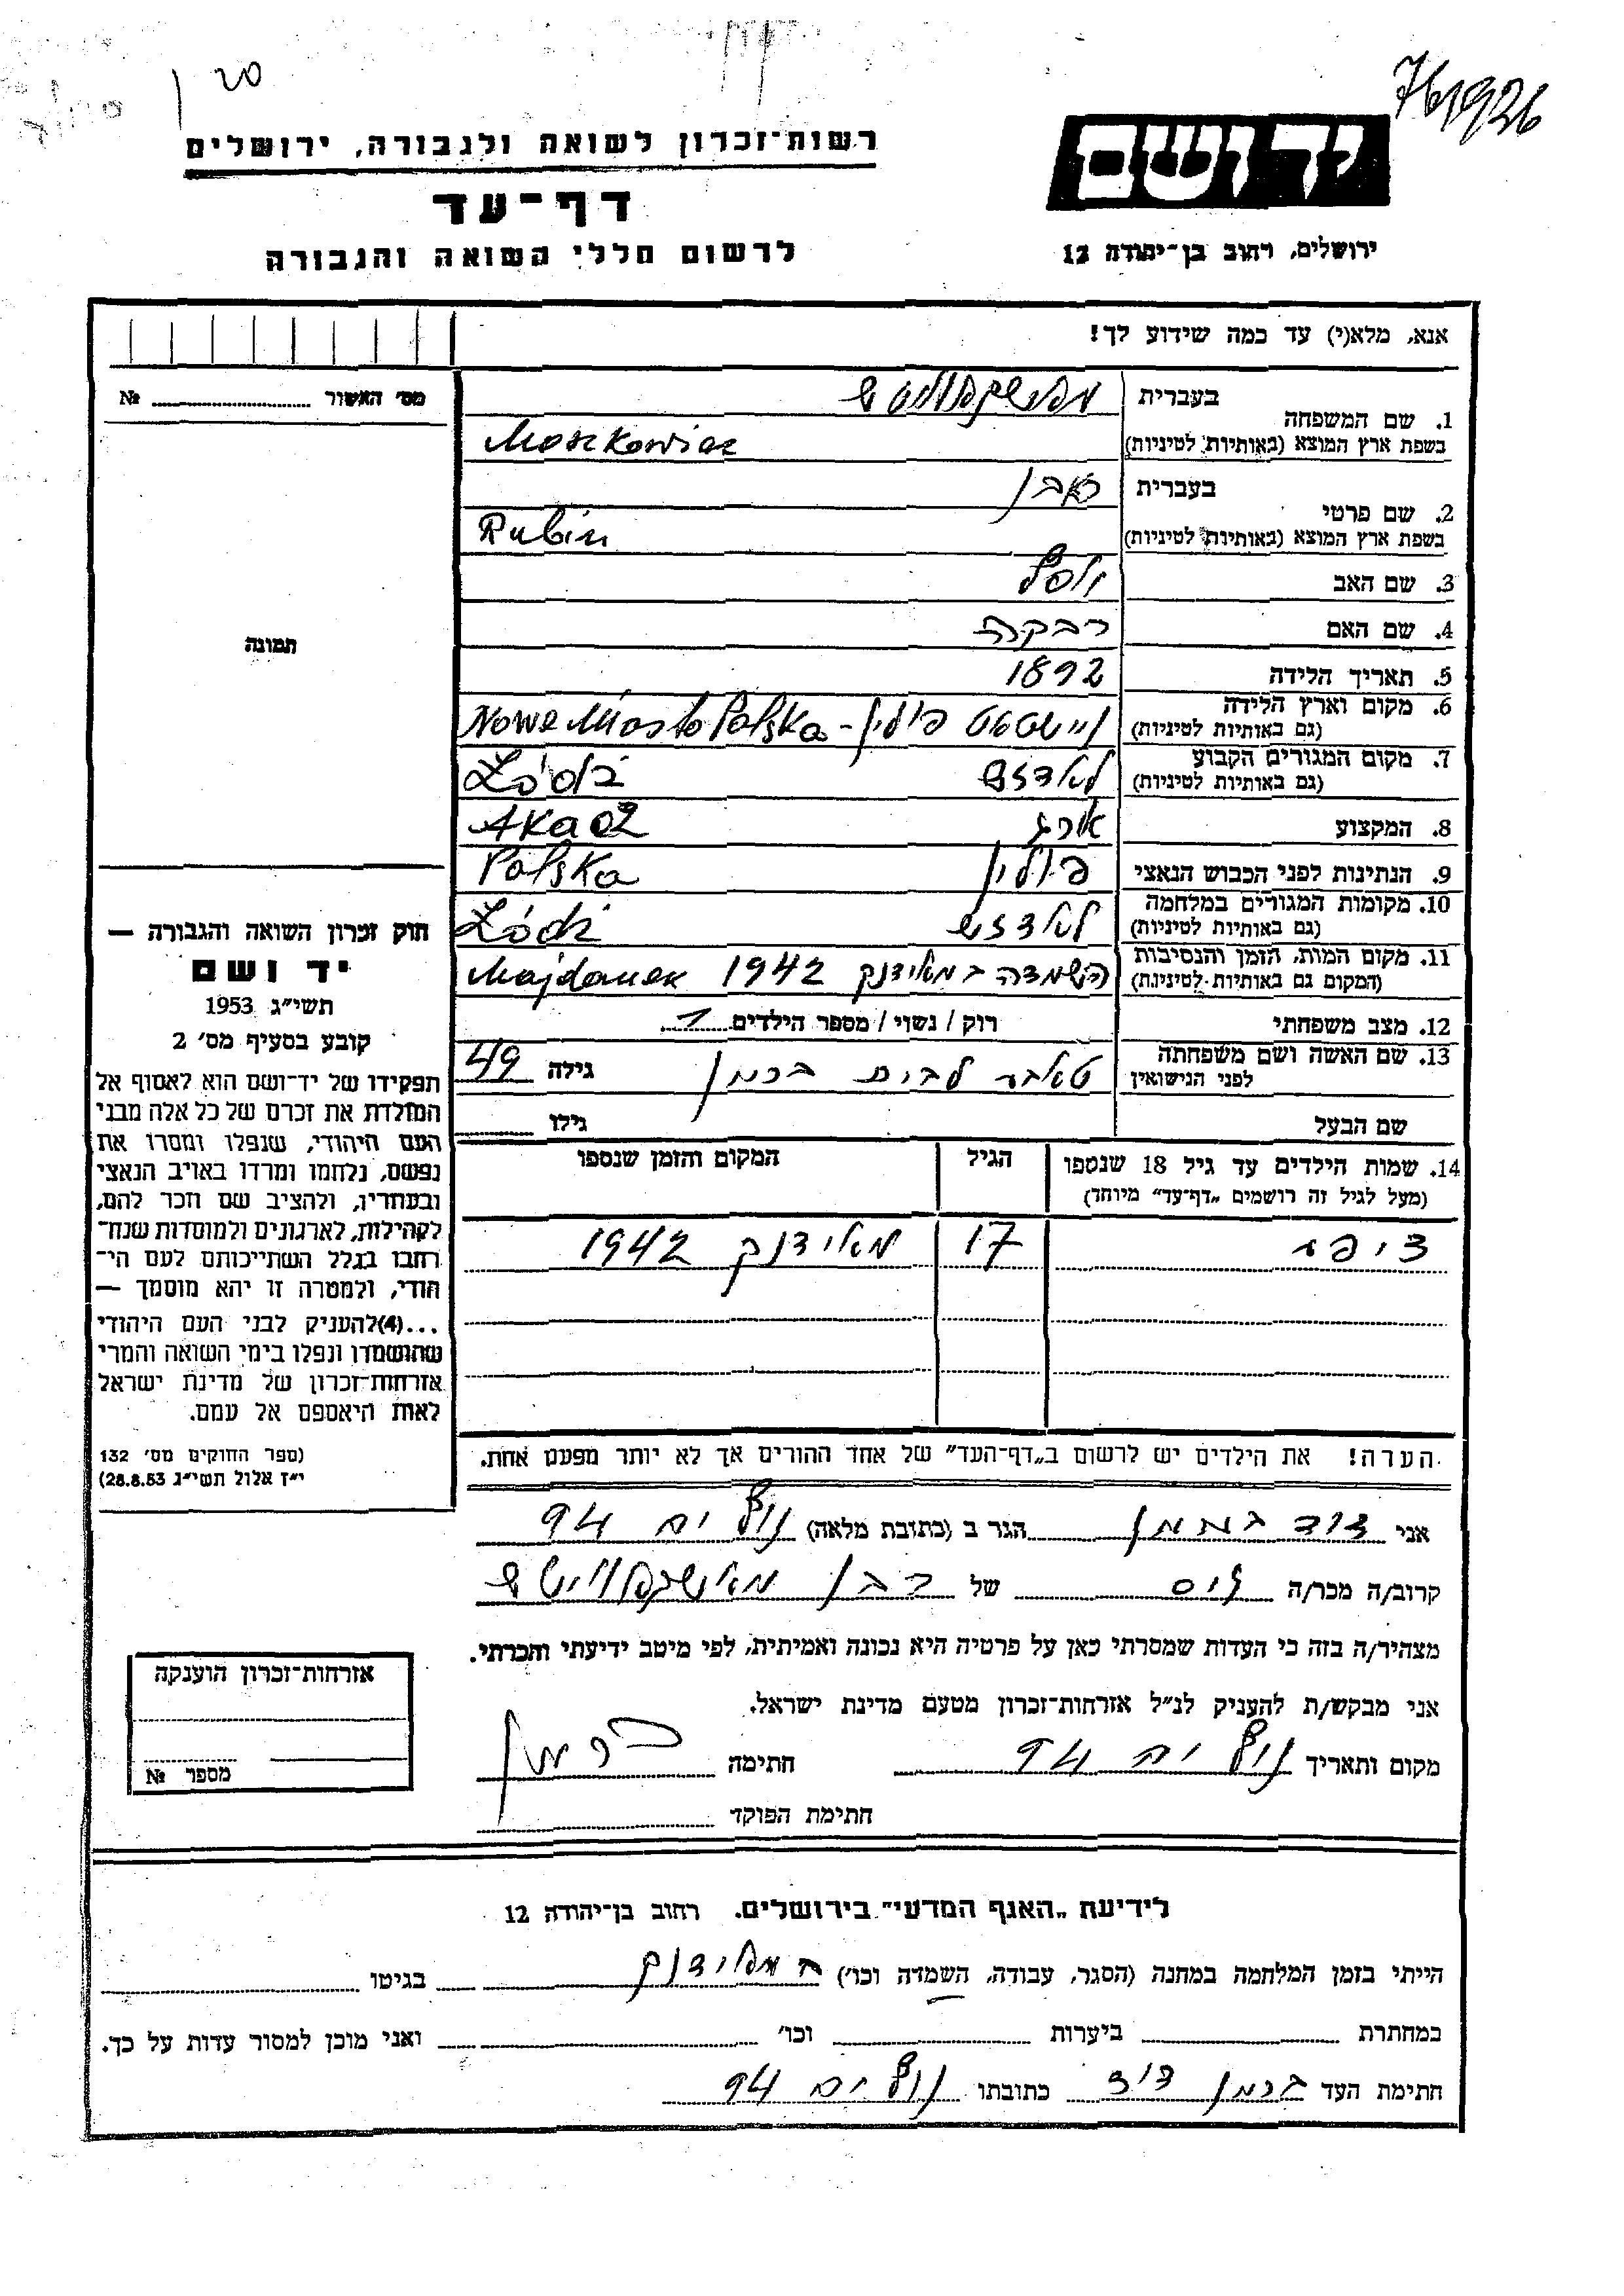 761926
יד ושם
ירושלים, רחוב בן־יהודה 12
רשות־זכרון לשואה ולגבורה, ירושלים
דף־עד
לרשום חללי השואה והגבורה
אנא, מלא(י) עד כמה שידוע לך!
מס׳ האשור № 
תמונה
1. שם המשפחה
בעברית מאשקאוויטש
בשפת ארץ המוצא (באותיות לטיניות) Moszkowicz
2. שם פרטי
בעברית ראבן
בשפת ארץ המוצא (באותיות לטיניות) Rubin
3. שם האב יוסף
4. שם האם רבקה
5. תאריך הלידה 1892
6. מקום וארץ הלידה (גם באותיות לטיניות) ניישטאט פולין - Nowe Miasto Polska
7. מקום המגורים הקבוע (גם באותיות לטיניות) לאדזש Łódź
8. המקצוע אורג
9. הנתינות לפני הכבוש הנאצי פולין Polska
10. מקומות המגורים במלחמה (גם באותיות לטיניות) לאדזש Łódź
11. מקום המות, הזמן והנסיבות (המקום גם באותיות לטינינות) השמדה במאידנק 1942 Majdanek
12. מצב משפחתי רוק / נשוי / מספר הילדים 1
13. שם האשה ושם משפחתה לפני הנישואין טאבר לבית בכמן גילה 49
שם הבעל גילו
14. שמות הילדים עד גיל 18 שנספו הגיל המקום והזמן שנספו
(מעל לגיל זה רושמים „דף־עד" מיוחד)
ציפר 17 מאידנק 1942
הערה! את הילדים יש לרשום ב„דף־העד" של אחד ההורים אך לא יותר מפעם אחת.
חוק זכרון השואה והגבורה —
יד ושם
תשי״ג 1953
קובע בסעיף מס׳ 2
תפקידו של יד־ושם הוא לאסוף אל
המולדת את זכרם של כל אלה מבני
העם היהודי, שנפלו ומסרו את
נפשם, נלחמו ומרדו באויב הנאצי
ובעוזריו, ולהציב שם וזכר להם,
לקהילות, לארגונים ולמוסדות שנח־
רבו בגלל השתייכותם לעם הי־
הודי, ולמטרה זו יהא מוסמך —
...(4)להעניק לבני העם היהודי
שהושמדו ונפלו בימי השואה והמרי
אזרחות־זכרון של מדינת ישראל
לאות היאספם אל עמם.
(ספר החוקים מס׳ 132
י״ז אלול תשי״ג 28.8.53)
אני דוד בכמן הגר ב (כתובת מלאה) נוף ים 94
קרוב/ה מכר/ה גיס של רבן מאשקאוויטש
מצהיר/ה בזה כי העדות שמסרתי כאן על פרטיה היא נכונה ואמיתית, לפי מיטב ידיעתי והכרתי.
אני מבקש/ת להעניק לנ״ל אזרחות־זכרון מטעם מדינת ישראל.
מקום ותאריך נוף ים 94 חתימה בכמן
חתימת הפוקד
אזרחות־זכרון הוענקה
מספר №
לידיעת „האגף המדעי" בירושלים. רחוב בן־יהודה 12
הייתי בזמן המלחמה במחנה (הסגר, עבודה, השמדה וכו׳) מאידנק בגיטו
במחתרת ביערות וכו׳ ואני מוכן למסור עדות על כך.
חתימת העד בכמן דוד כתובתו נוף ים 94